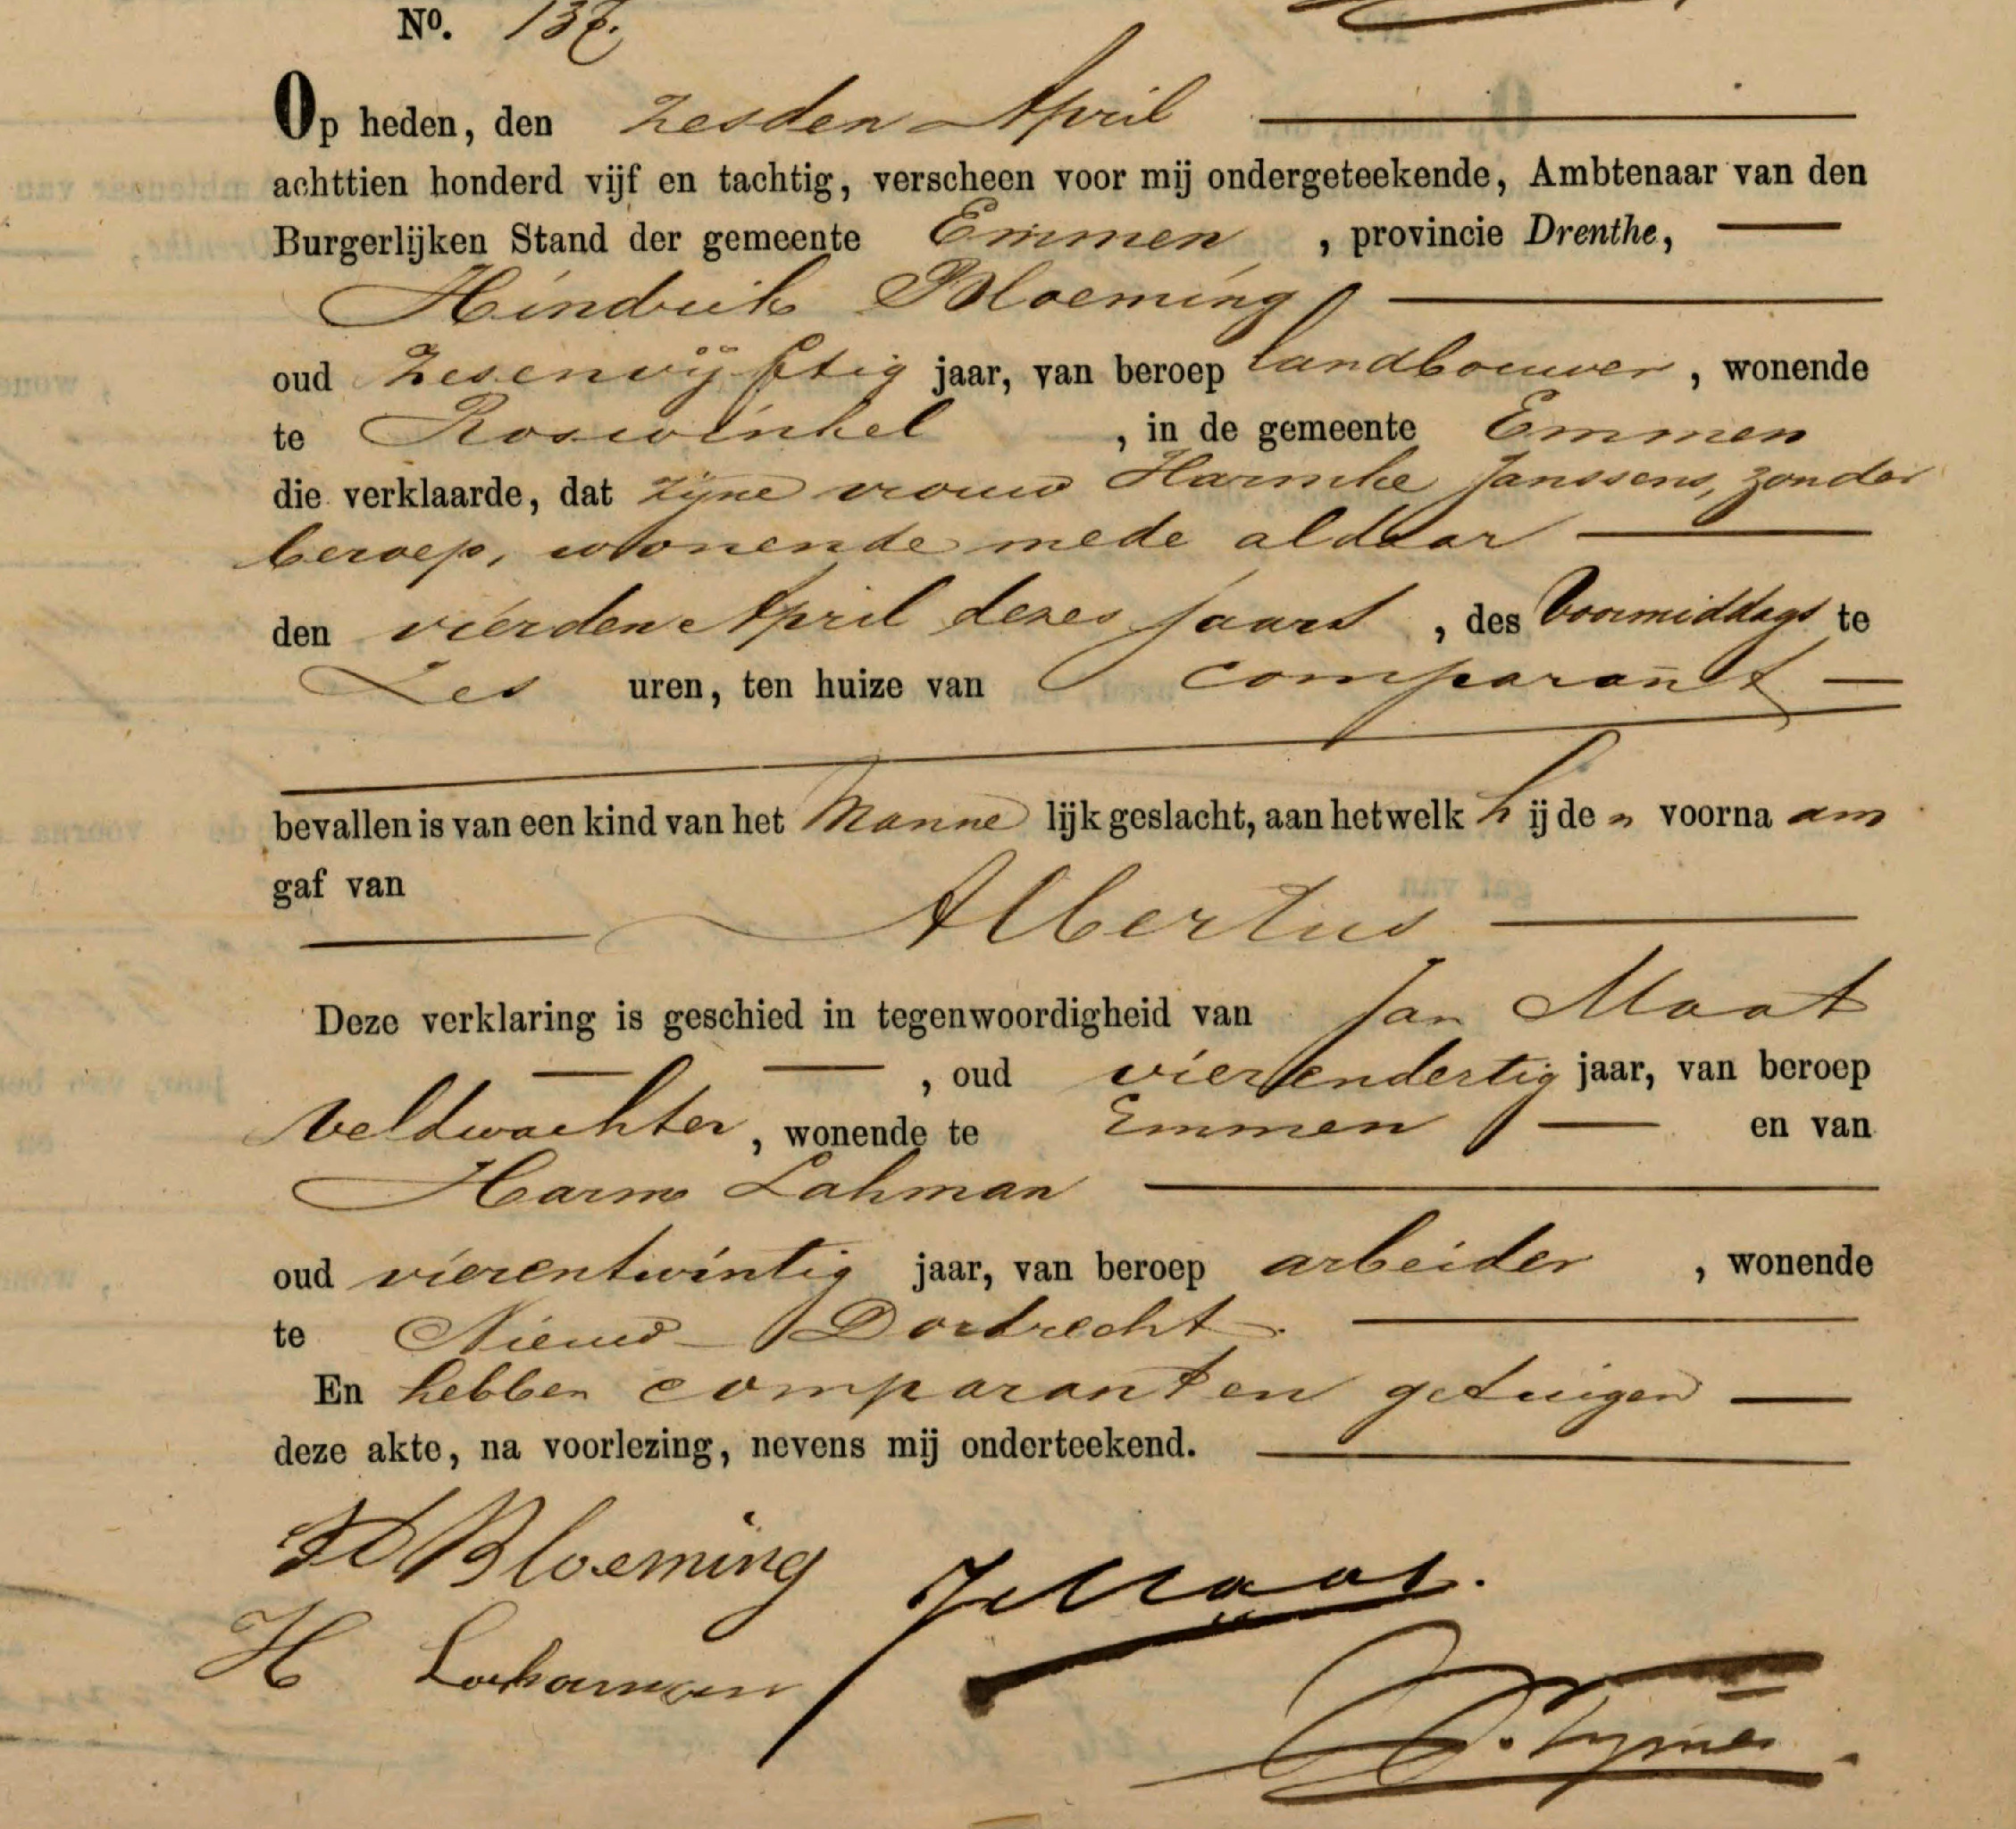 No. 137.
Op heden, den zesden April
achttien honderd vijf en tachtig, verscheen voor mij ondergeteekende, Ambtenaar van den
Burgerlijken Stand der gemeente Emmen, provincie Drenthe,
Hindrik Bloeming
oud zesenvijftig jaar, van beroep landbouwer, wonende
te Roswinkel, in de gemeente Emmen
die verklaarde, dat zijne vrouw Harmke Janssens, zonder
beroep, wonende mede aldaar
den vierden April dezes jaars, des Voormiddags te
Zes uren, ten huize van comparant
bevallen is van een kind van het Mannelijk geslacht, aan hetwelk hij den voornaam
gaf van
Albertus
Deze verklaring is geschied in tegenwoordigheid van Jan Maat
, oud vierendertig jaar, van beroep
veldwachter, wonende te Emmen en van
Harm Lahman
oud vierentwintig jaar, van beroep arbeider, wonende
te Nieuw-Dordrecht.
En hebben comparant en getuigen
deze akte, na voorlezing, nevens mij onderteekend.
H Bloeming
J Maat.
H Lahaman